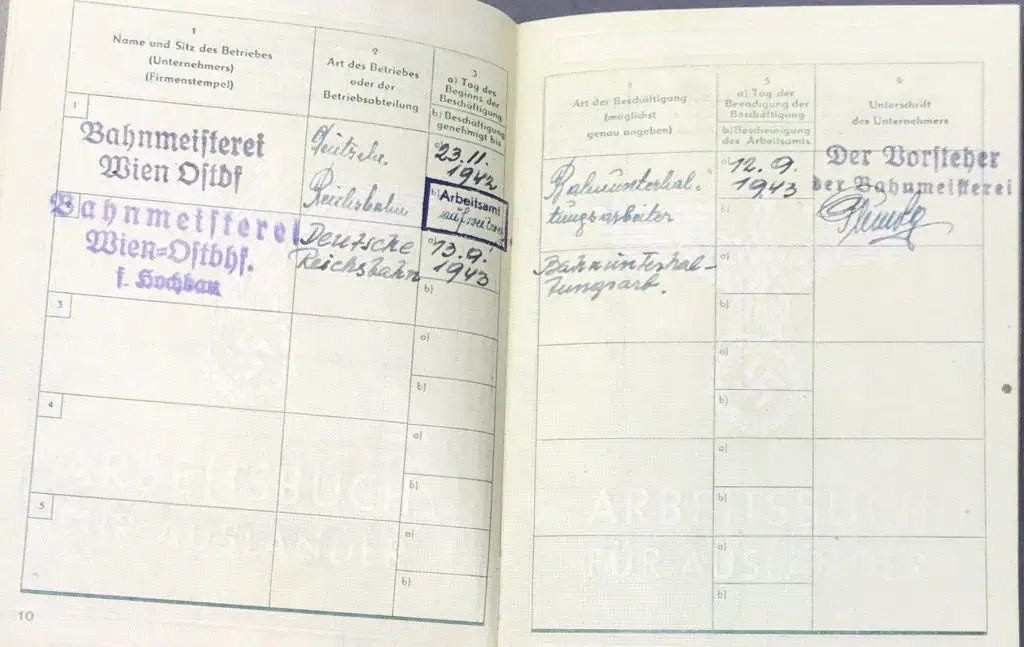 1
Name und Sitz des Betriebes
(Unternehmers)
(Firmenstempel)
2
Art des Betriebes
oder der
Betriebsabteilung
3
a) Tag des
Beginns der
Beschäftigung
b) Beschäftigung
genehmigt bis
1
Bahnmeisterei
Wien Ostbf
Deutsche
Reichsbahn
a) 23.11.
1942
b) Arbeitsamt
Bahnmeisterei
Wien=Ostbhf.
f. Hochbau
Deutsche
Reichsbahn
a) 13.9.
1943
b)
3
a)
b)
4
a)
b)
5
a)
b)
ARBEITSBUCH
FÜR AUSLÄNDER
10
4
Art der Beschäftigung
(möglichst
genau angeben)
5
a) Tag der
Beendigung der
Beschäftigung
b) Bescheinigung
des Arbeitsamts
6
Unterschrift
des Unternehmers
Bahnunterhal-
tungsarbeiter
a) 12.9.
1943
b)
Der Vorsteher
der Bahnmeisterei
Bahnunterhal-
tungsarb.
a)
b)
a)
b)
a)
b)
a)
b)
ARBEITSBUCH
FÜR AUSLÄNDER